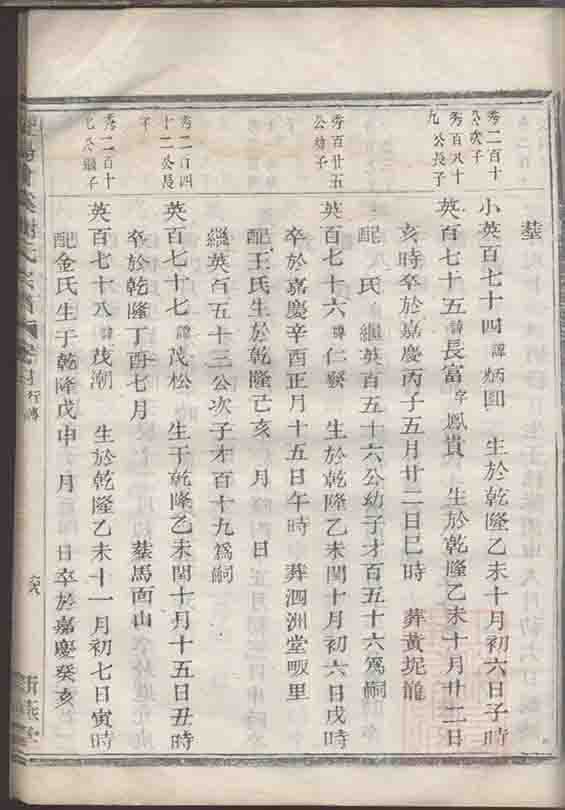 塟
秀二百十
公次子
小英百七十四 諱 炳 生於乾隆乙未十月初六日子時
秀百八十
九公長子
英百七十五 諱 長富 字 鳳賞 生於乾隆乙未十月廿二日
亥時卒於嘉慶丙子五月廿二日巳時 葬黃坭龍
配 氏 繼英百五十六公幼子才百五十六爲嗣
秀百廿五
公幼子
英百七十六 諱 仁 生於乾隆乙未閏十月初六日戌時
卒於嘉慶辛酉正月十五日午時 葬泗洲堂畈里
配王氏生於乾隆己亥 月 日
繼英百五十三公次子才百十九爲嗣
秀二百四
十二公長
子
英百七十七 諱 茂松 生于乾隆乙未閏十月十五日丑時
卒於乾隆丁酉七月 塟馬面山
秀二百十
七公繼子
英百七十八 諱 茂潮 生於乾隆乙未十一月初七日寅時
配金氏生于乾隆戊申 月 日卒於嘉慶癸亥
氏宗譜
行傳